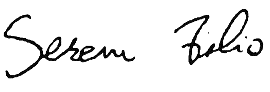 Serem Filio